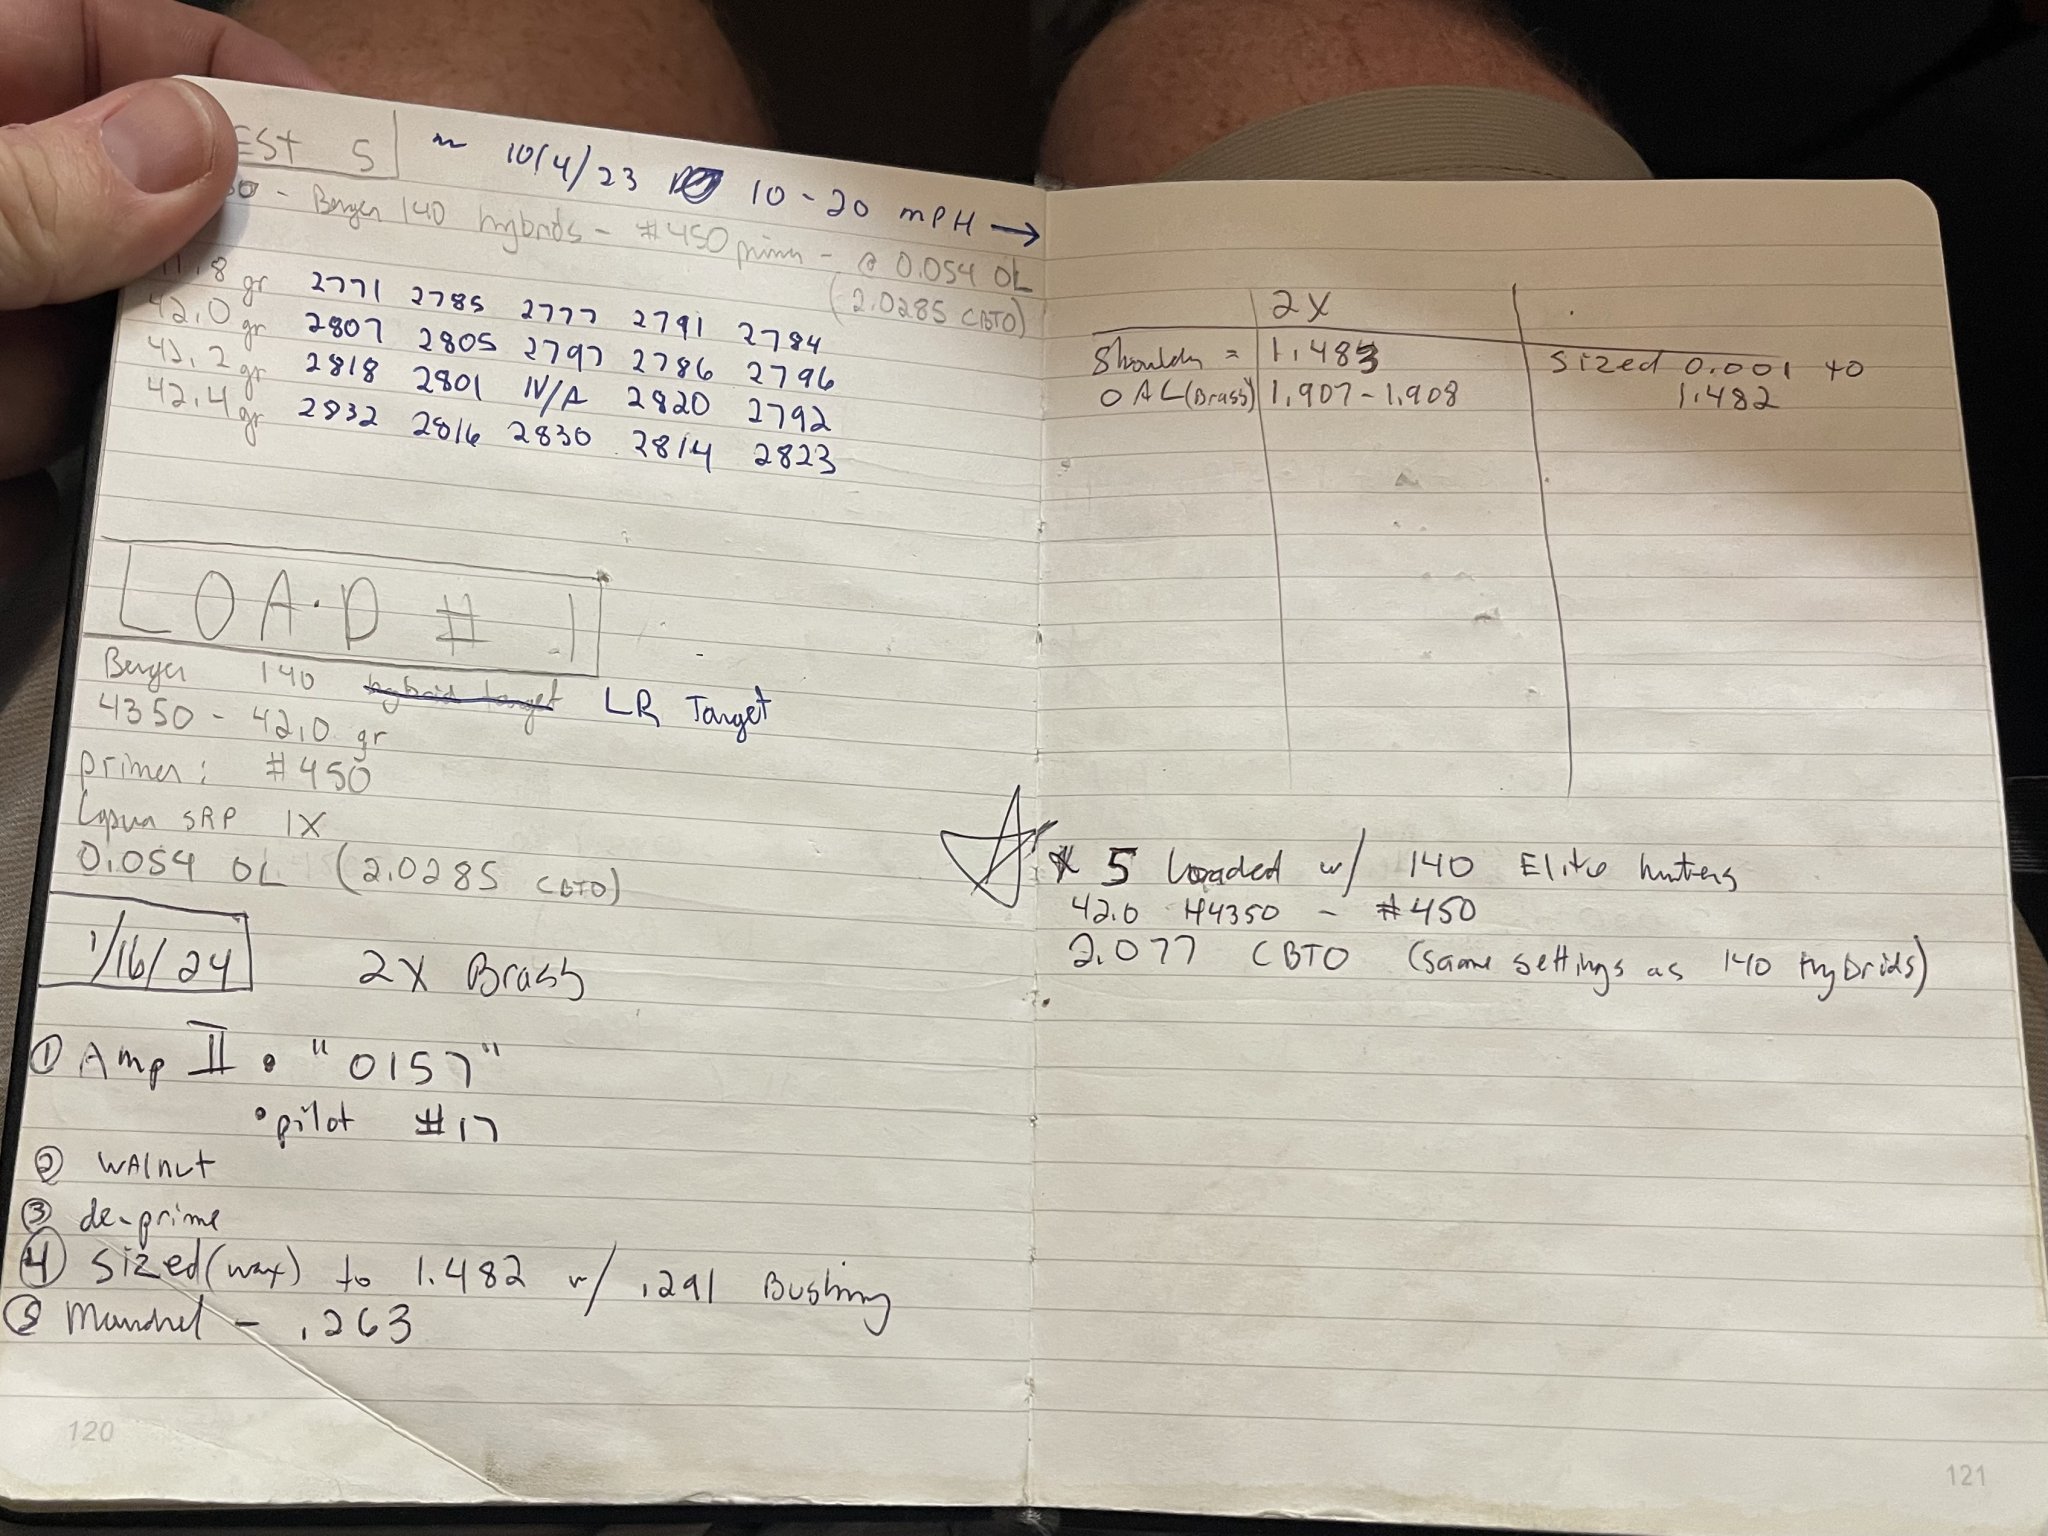 EST 5 ~ 10/4/23 10-20 mPH →
50 - Berger 140 hybrids - #450 primer - @ 0.054 OL
(2.0285 CBTO)
.8 gr 2771 2785 2777 2791 2784
42.0 gr 2807 2805 2797 2786 2796
42.2 gr 2818 2801 N/A 2820 2792
42.4 gr 2832 2816 2830 2814 2823
LOAD # 1
Berger 140 hybrid target LR Target
4350 - 42.0 gr
primer: #450
Lapua SRP 1X
0.054 OL (2.0285 CBTO)
1/16/24 2X Brass
① Amp II • "0157"
• pilot #17
② WAlnut
③ de-prime
④ Sized (wax) to 1.482 w/ .291 Bushing
⑤ Mandrel - .263
120
2X
Shoulder = 1.483 Sized 0.001 to
OAL (Brass) 1.907 - 1.908 1.482
5 Loaded w/ 140 Elite hunters
42.0 H4350 - #450
2.077 CBTO (same settings as 140 Hybrids)
121